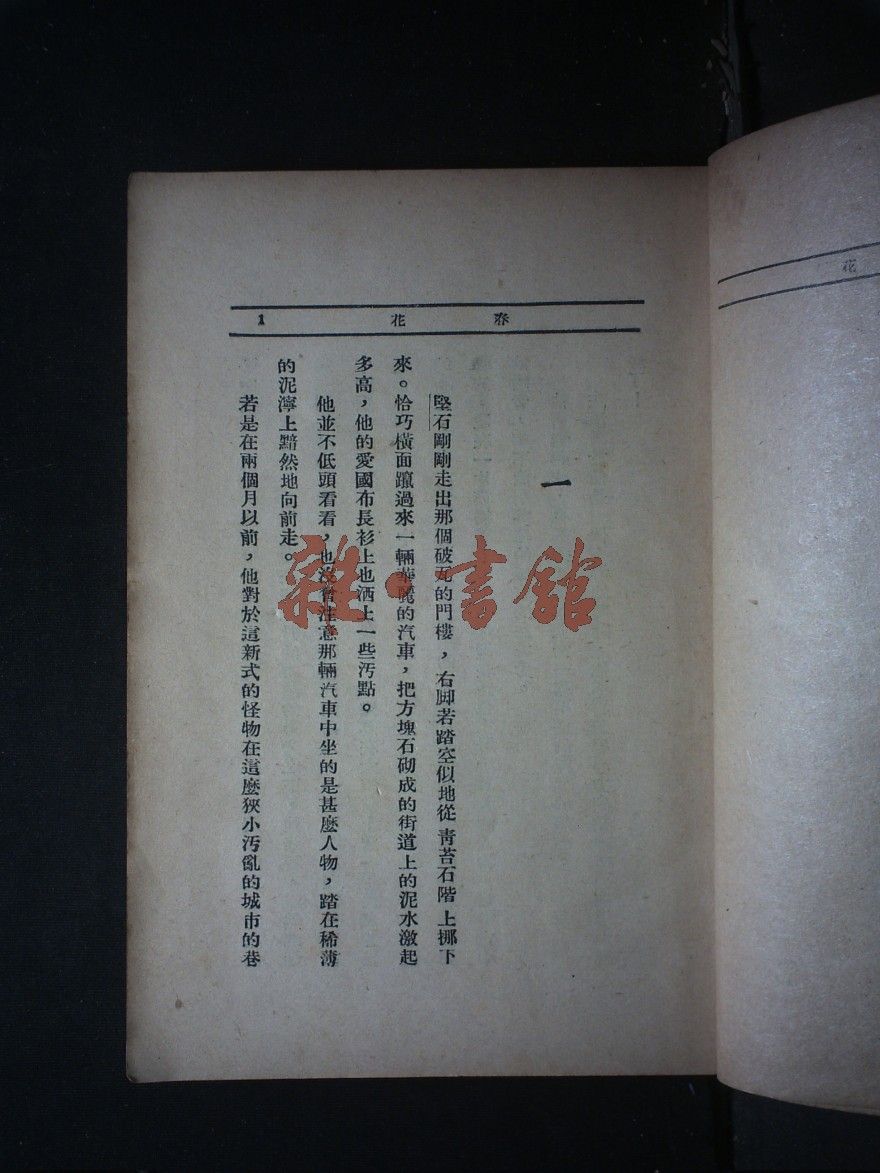 春花
1
一
堅石剛剛走出那個破瓦的門樓，右脚若踏空似地從青苔石階上挪下
來。恰巧橫面躥過來一輛華麗的汽車，把方塊石砌成的街道上的泥水激起
多高，他的愛國布長衫上也洒上一些汚點。
他並不低頭看看，也沒曾注意那輛汽車中坐的是甚麼人物，踏在稀薄
的泥濘上黯然地向前走。
若是在兩個月以前，他對於這新式的怪物在這麼狹小汚亂的城市的巷
雜·書館
花